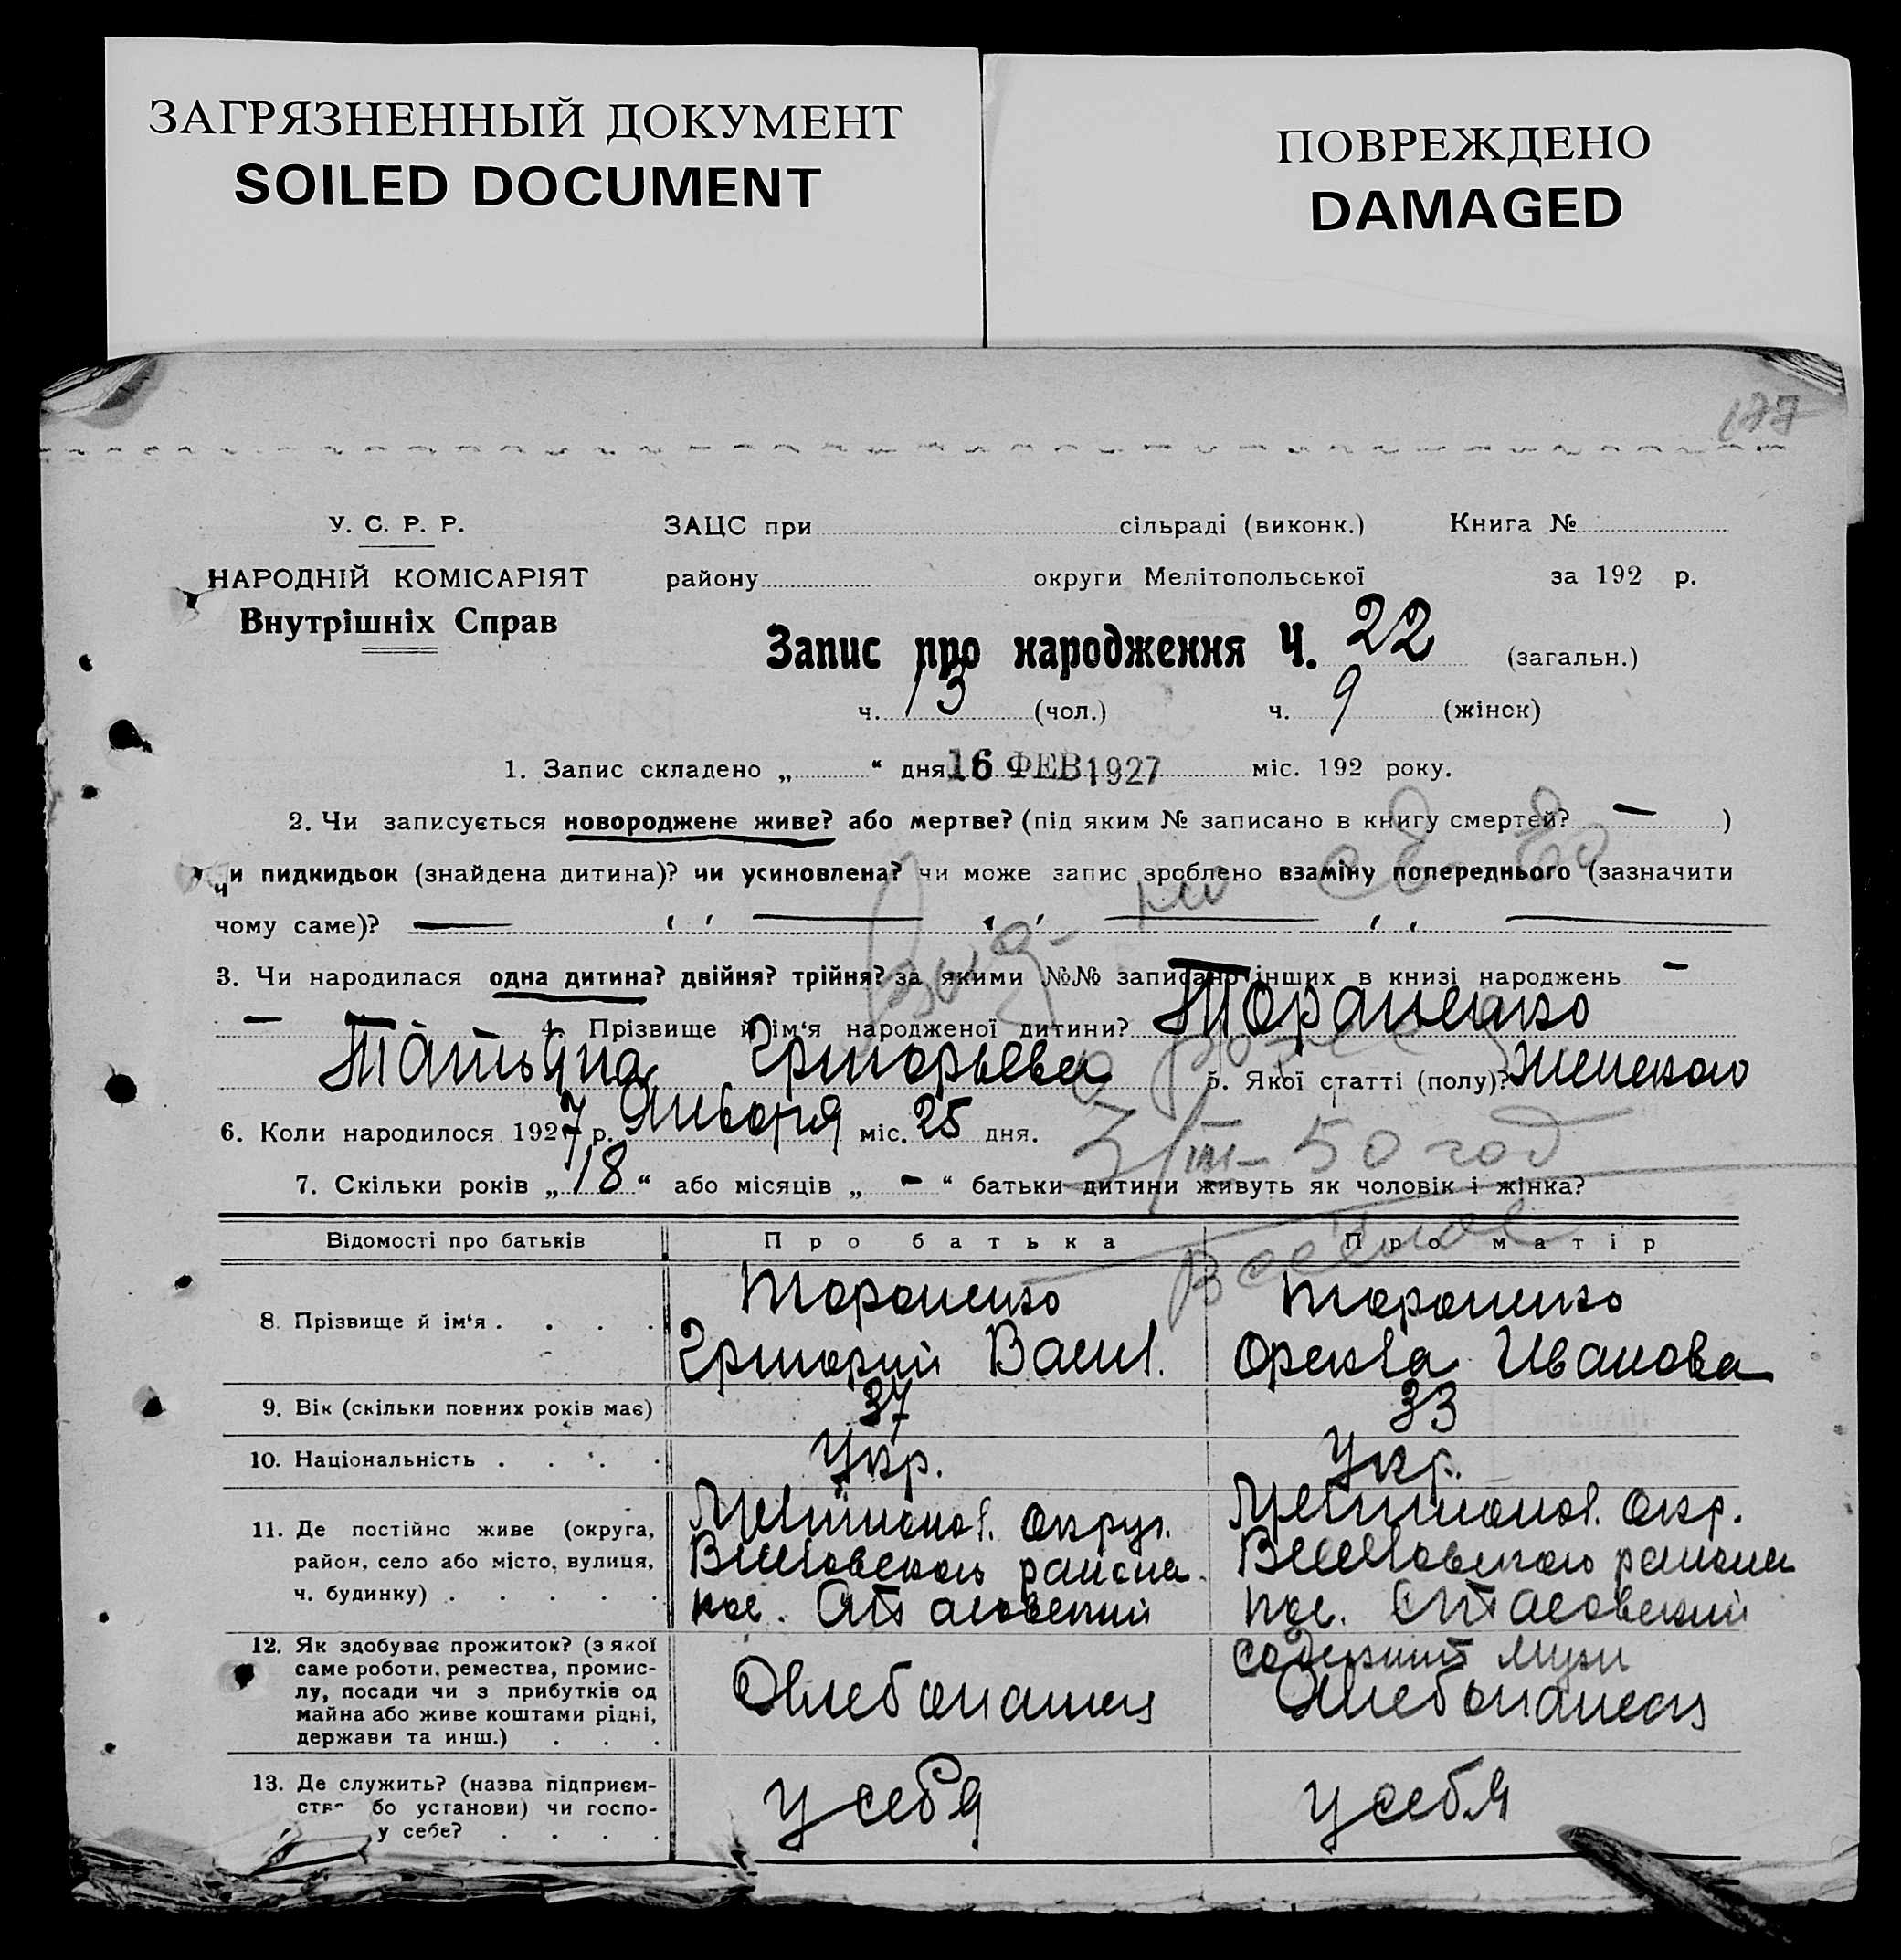 ЗАГРЯЗНЕННЫЙ ДОКУМЕНТ
SOILED DOCUMENT
ПОВРЕЖДЕНО
DAMAGED
177
У. С. Р. Р.
НАРОДНІЙ КОМІСАРІЯТ
Внутрішніх Справ
ЗАЦС при сільраді (виконк.) Книга №
району округи Мелітопольської за 192 р.
Запис про народження Ч. 22 (загальн.)
ч. 13 (чол.) ч. 9 (жінок)
1. Запис складено „ “ дня 16 ФЕВ 1927 міс. 192 року.
2. Чи записується новороджене живе? або мертве? (під яким № записано в книгу смертей? — )
чи пидкидьок (знайдена дитина)? чи усиновлена? чи може запис зроблено взаміну попереднього (зазначити
чому саме)? — " — " — " —
3. Чи народилася одна дитина? двійня? трійня? за якими №№ записано інших в книзі народжень —
— 4. Прізвище й ім‘я народженої дитини? Тараненко
Татьяна Григорьева 5. Якої статті (полу)? Женского
6. Коли народилося 1927 р. Января міс. 25 дня.
3/III-50 год
7. Скільки років „ 18 “ або місяців „ - “ батьки дитини живуть як чоловік і жінка?
Відомості про батьків Про батька Про матір
8. Прізвище й ім‘я . . . . Тараненко Тараненко
Григорий Васил. Иванова
9. Вік (скільки повних років має) 37 33
10. Національність . . . . Укр. Укр.
11. Де постійно живе (округа, Мелитопол. округ. Мелитопол. окр.
район, село або місто, вулиця, района района
ч. будинку) . . . . . пос. пос.
12. Як здобуває прожиток? (з якої содержит муж
саме роботи, ремества, промис-
лу, посади чи з прибутків од Хлебопашец Хлебопашец
майна або живе коштами рідні,
держави та инш.) . . .
13. Де служить? (назва підприєм-
бо установи) чи госпо- у себя у себя
у себе? . . . .